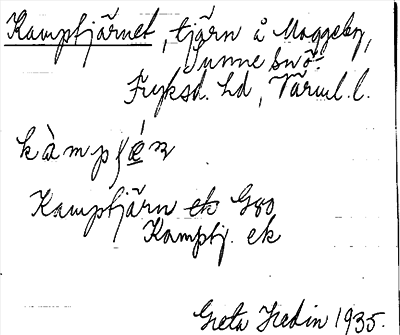 Kamptjärnet, tjärn å Moggeby,
Sunne sn ö.
Fryksd. hd, Värml. l.
Kamptjärn ek G80
Kamptj. ek
Greta Hedin 1935.